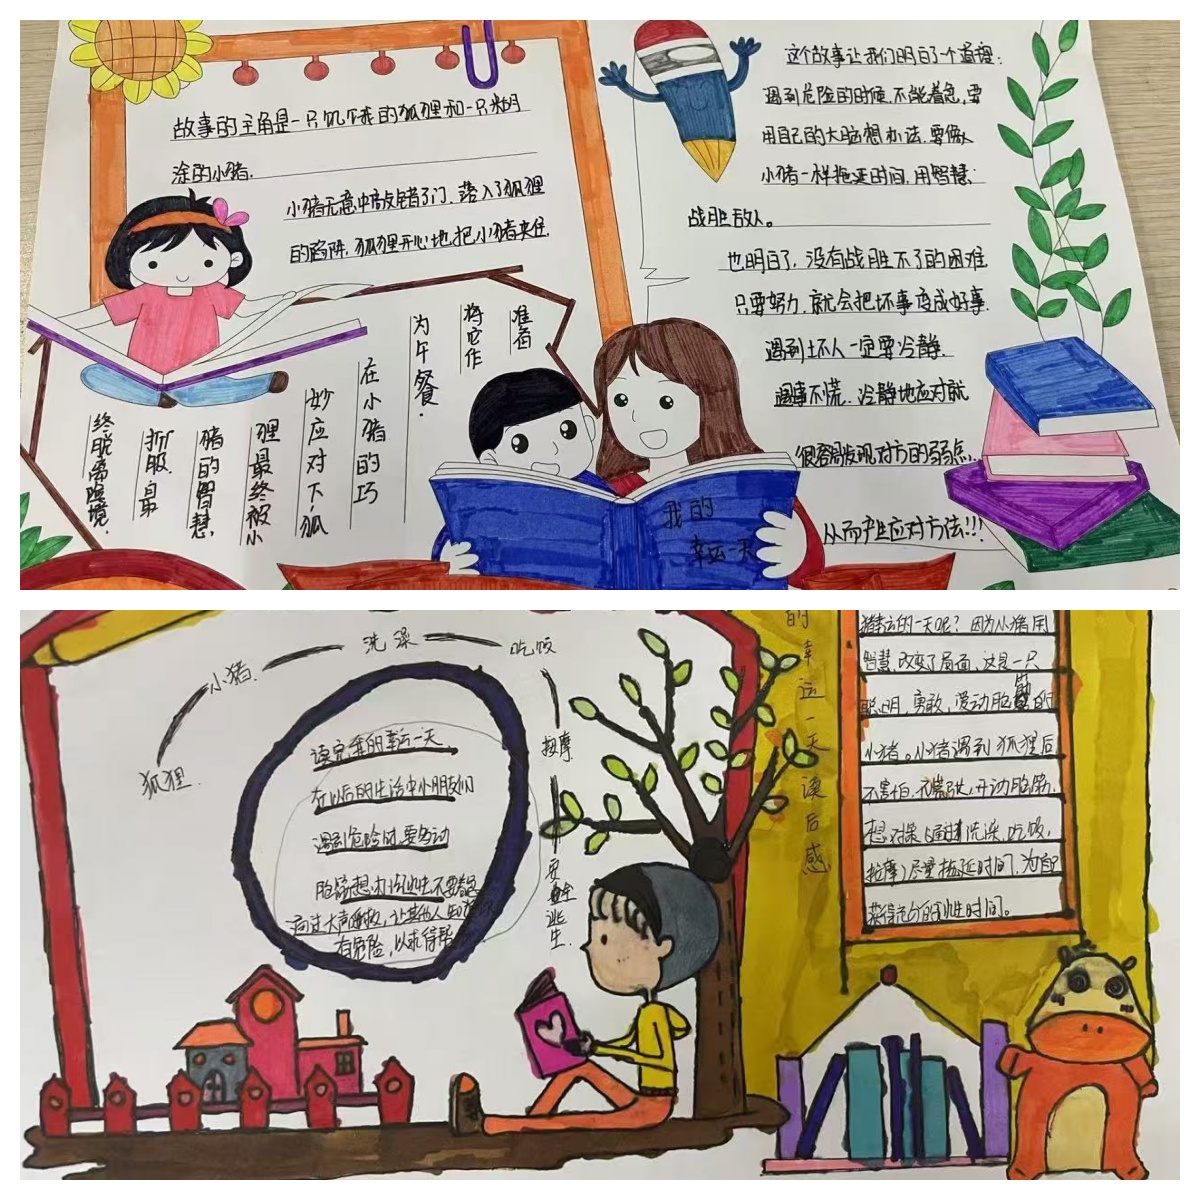 故事的主角是一只饥饿的狐狸和一只糊
涂的小猪.
小猪无意中敲错了门.落入了狐狸
的陷阱,狐狸开心地把小猪夹住,
准备
将它作
为午餐.
在小猪的巧
妙应对下,狐
狸最终被小
猪的智慧,
折服.最
终脱离险境.
我的
幸运一天
这个故事让我们明白了一个道理:
遇到危险的时候,不能着急,要
用自己的大脑想办法,要像
小猪一样拖延时间,用智慧
战胜敌人。
也明白了,没有战胜不了的困难
只要努力,就会把坏事变成好事.
遇到坏人一定要冷静.
遇事不慌.冷静地应对就
很容易发现对方的弱点,
从而产生应对方法!!!
狐狸.
小猪.
洗澡
吃饭
按摩.
逃生.
读完我的幸运一天
在以后的生活中小朋友们
遇到危险时,要多动
脑筋想办法,不要着急
通过大声呼救,让其他人知道
有危险,以求得帮
的幸运一天读后感
猪幸运的一天呢?因为小猪用
智慧,改变了局面,这是一只
聪明,勇敢,爱动脑筋的
小猪。小猪遇到狐狸后
不害怕,不慌张,开动脑筋,
想对策(通过洗澡,吃饭,
按摩)尽量拖延时间,为自己
获得充分的时间。